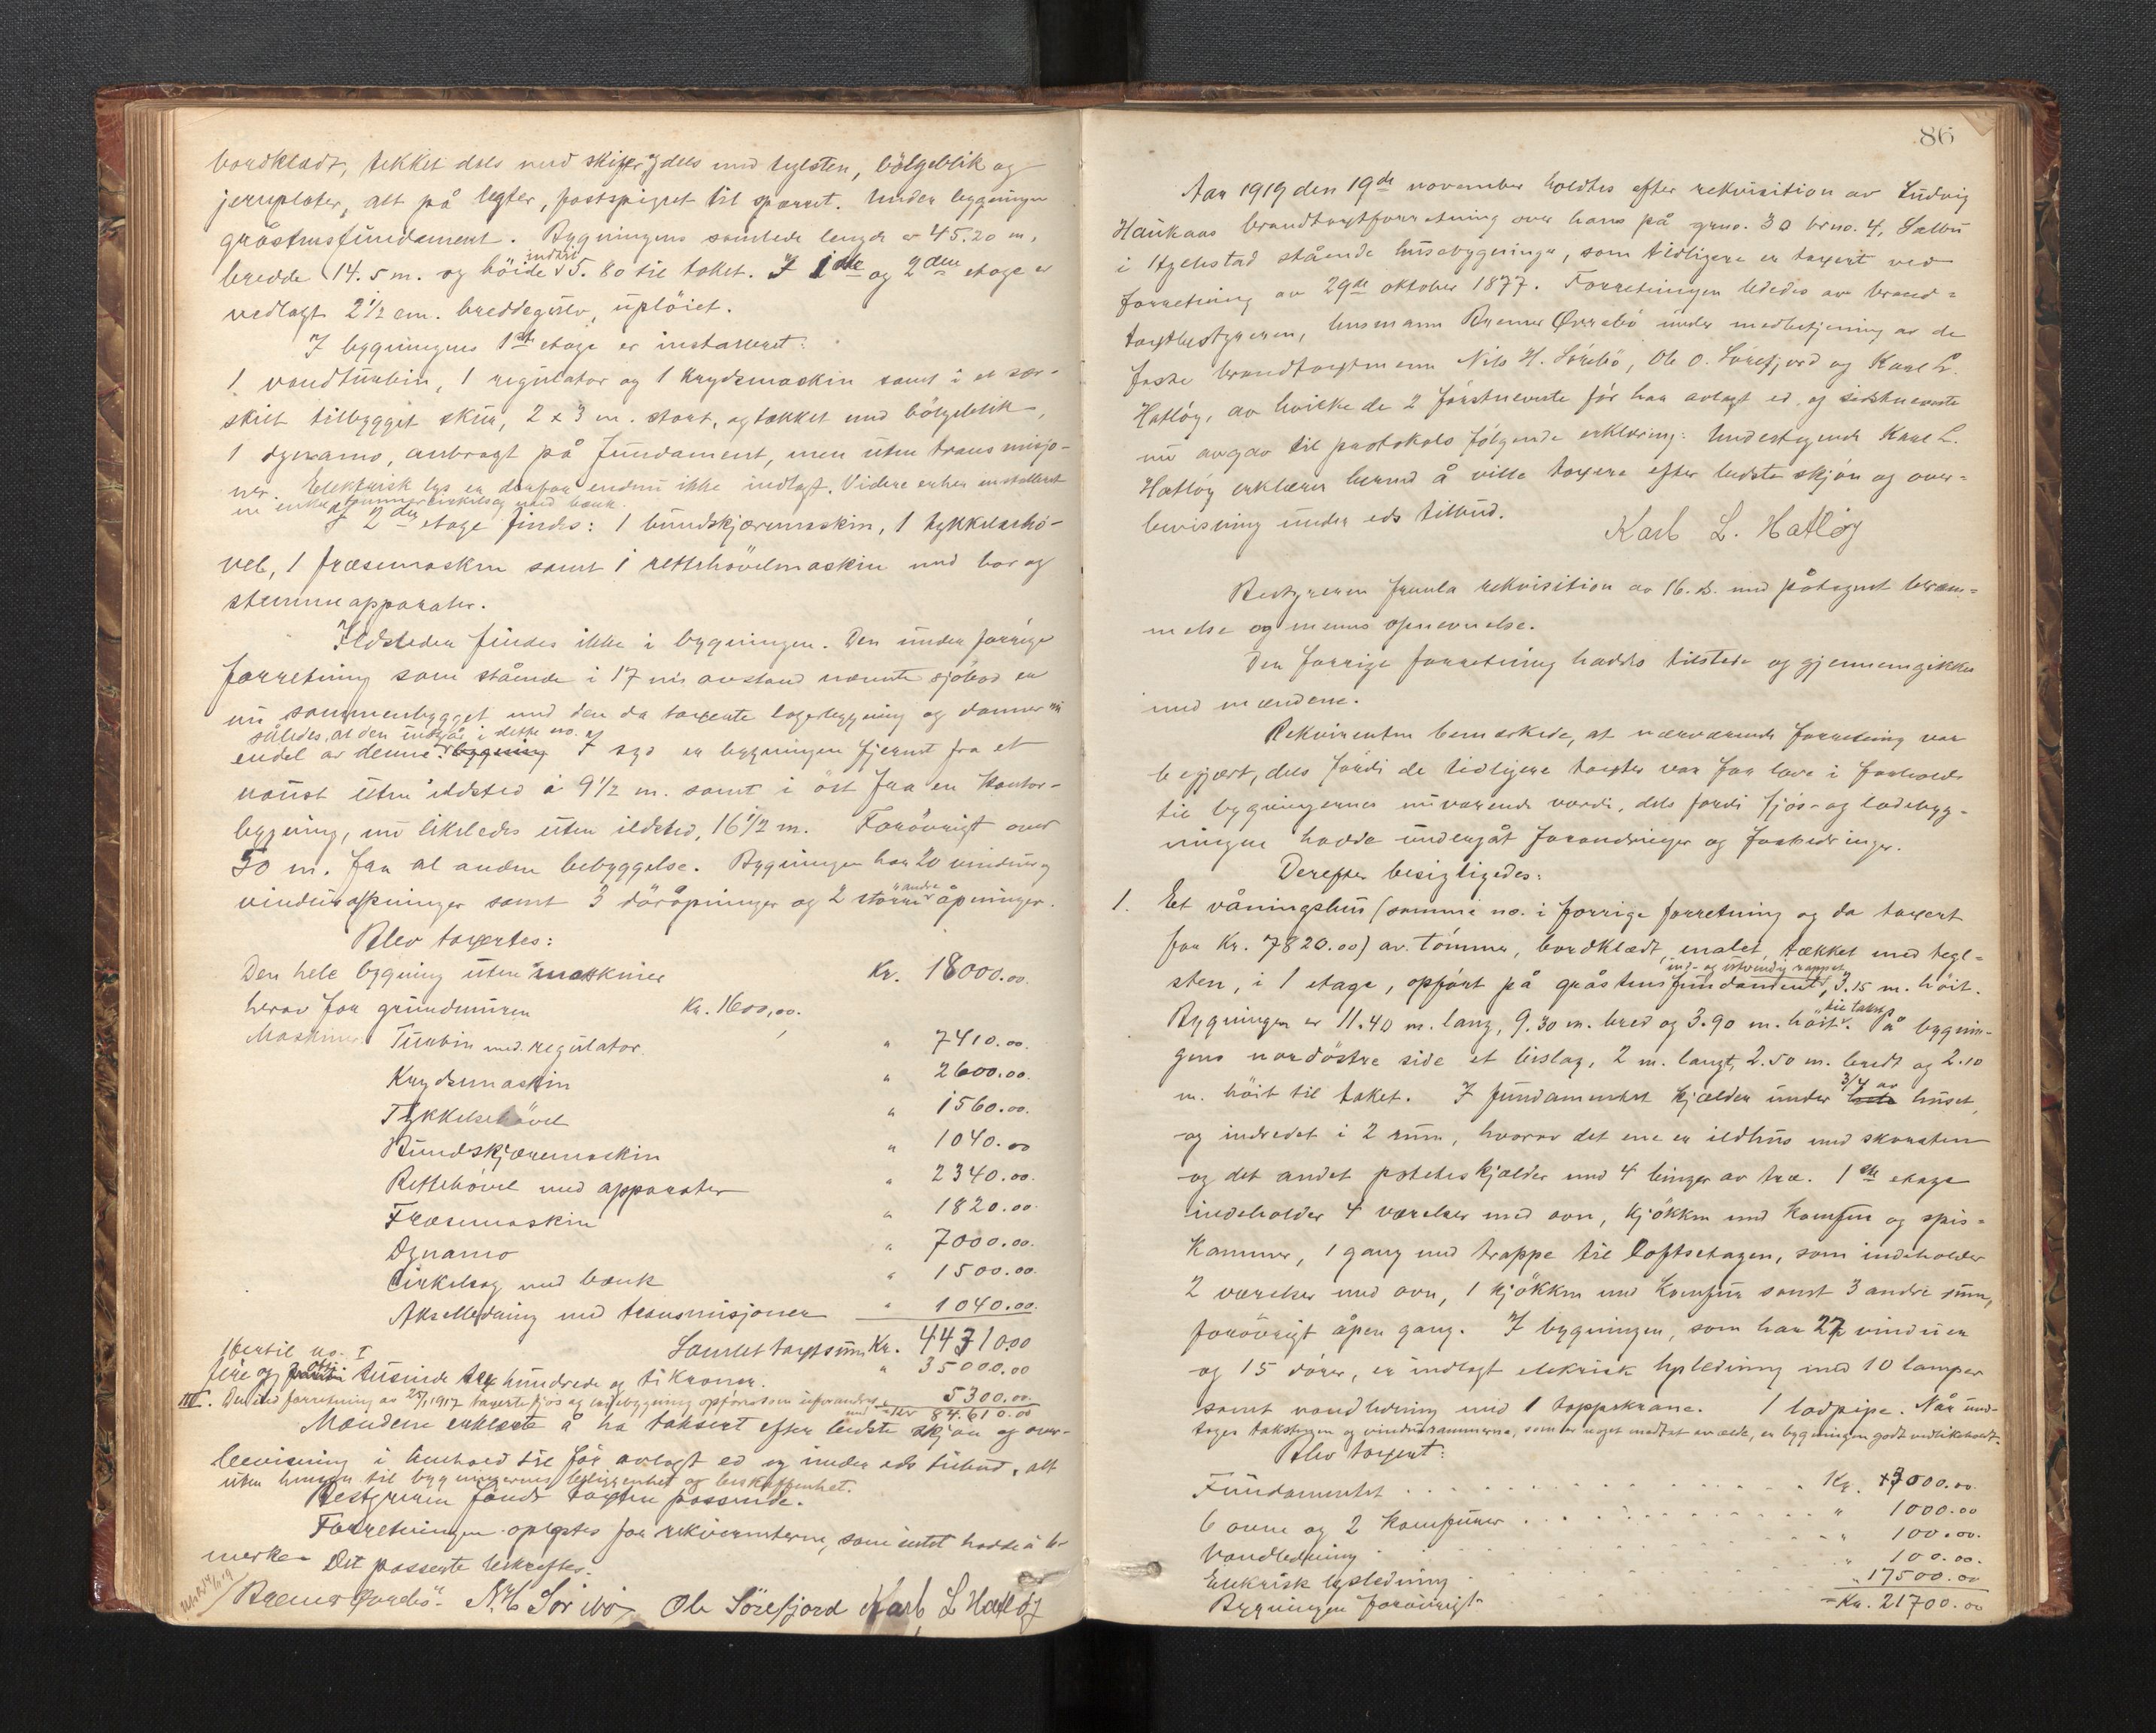 bordklædt, tekket dels med skifer, dels med teglsten, bölgeblik og
jernplater, alt på legter, fastspigret til sparret. Under bygningen
gråstensfundament. Bygningens samlede lengde er 45.20 m,
indtil
bredde 14.5 m. og höide 5.80 til taket. I 1ste og 2den etage er
vedlagt 2 1/2 cm. breddegulv, uplöiet.
I bygningens 1ste etage er installeret:
1 vandturbin, 1 regulator og 1 krydsmaskin samt i et sær-
skilt tilbygget skur, 2 x 3 m. stort, og tækket med bölgeblik,
1 dynamo, anbragt på fundament, men uten transmisjo-
ner. Elektrisk lys er derfor endnu ikke indlagt. Videre er her installeret
en enkel tømmercirkelsag med bænk.
I 2den etage findes: 1 bundskjæremaskin, 1 tykkelsehö-
vel, 1 fræsemaskin samt 1 rettehövelmaskin med bor og
stemmeapparater.
Ildsteder findes ikke i bygningen. Den under forrige
forretning som stående i 17 m's avstand nævnte sjöbod er
nu sammenbygget med den da taxerte lagerbygning og danner nu
således, at den indgår i dette no.
endel av denne bygning. I syd er bygningen fjernet fra et
naust uten ildsted à 9 1/2 m. samt i öst fra en kontor-
bygning, nu likeledes uten ildsted, 16 1/2 m. Forövrigt over
50 m. fra al anden bebyggelse. Bygningen har 20 vinduer og
andre
vinduåpninger samt 3 döråpninger og 2 större åpninger.
Blev taxertes:
Den hele bygning uten maskiner Kr. 18000.00
herav for grundmuren Kr. 1600,00.
Maskiner: Turbin med regulator " 7410.00.
Krydsmaskin " 2600.00.
Tykkelsehövel " 1560.00.
Bundskjæremaskin " 1040.00
Rettehövel med apparater " 2340.00.
Fræsemaskin " 1820.00.
Dynamo " 7000.00.
Cirkelsag med bænk " 1500.00.
Akselledning med transmisjoner " 1040.00.
Samlet taxtsum Kr. 44310.00
Hertil no. I " 35000.00
fire og tusinde tre hundrede og ti kroner.
III. Den ved forretning av 25/1 1917 taxerte fjös og ladebygning opföres som uforandret
med 5300.00.
84.610.00
Mændene erklærte å ha taksert efter bedste skjön og over-
bevisning i henhold til för avlagt ed og under eds tilbud, alt
uten hensyn til bygningernes beliggenhet og beskaffenhet.
Bestyreren fandt taxten passende.
Forretningen oplæstes for rekvirenterne, som intet hadde å be-
merke. Det passerte bekræftes.
Bremer Øvrebö. N. H. Sörebö Ole Sörefjord Karl L Hatlöy
86
Aar 1919 den 19de november holdtes efter rekvisition av Ludvig
Haukaas brandtaxtforretning over hans på gno. 30 brno. 4, Sælbu
i Hyllestad stående husebygninger, som tidligere er taxert ved
forretning av 29de oktober 1877. Forretningen lededes av brand-
taxtbestyreren, lensmann Bremer Øvrebö under medbetjening av de
faste brandtaxtmenn Nils H. Sörebö, Ole O. Sörefjord og Karl L.
Hatlöy, av hvilke de 2 förstnevnte för har avlagt ed og sidstnevnte
nu avgav til protokols fölgende erklæring: Undertegnede Karl L.
Hatlöy erklærer herved å ville taxere efter bedste skjön og over-
bevisning under eds tilbud.
Karl L. Hatlöy
Bestyreren fremla rekvisition av 16. ds. med påtegnet beram-
melse og menns opnevnelse.
Den forrige forretning haddes tilstede og gjennemgikkes
med mændene.
Rekvirenten bemerkede, at nærværende forretning var
begjært, dels fordi de tidligere taxter var for lave i forhold
til bygningernes nuværende værdi, dels fordi fjös- og ladebyg-
ningen havde undergåt forandringer og forbedringer.
Derefter besigtigedes:
1. Et våningshus (samme no. i forrige forretning og da taxert
for Kr. 7820.00) av tömmer, bordklædt, malet, tækket med tegl-
ind- og utvendig rappet
sten, i 1 etage, opfört på gråstensfundament, 3.15 m. höit.
til taket
Bygningen er 11.40 m. lang, 9.30 m. bred og 3.90 m. höit. På bygnin-
gens nordöstre side et bislag, 2 m. langt, 2.50 m. bredt og 2.10
3/4 av
m. höit til taket. I fundamentet kjælder under hele huset,
og indredet i 2 rum, hvorav det ene er ildhus med skorsten
og det andet potetkjælder med 4 binger av træ. 1ste etage
indeholder 4 værelser med ovn, kjökken med komfur og spis-
kammer, 1 gang med trappe til loftsetagen, som indeholder
2 værelser med ovn, 1 kjökken med komfur samt 3 andre rum,
forövrigt åpen gang. I bygningen, som har 27 vinduer
og 15 dörer, er indlagt elekrisk lysledning med 10 lamper
samt vandledning med 1 tappekrane. 1 lodpipe. Når und-
tages takstegen og vindusrammerne, som er noget medtat av ælde, er bygningen godt vedlikeholdt.
Blev taxert:
Fundamentet Kr. 3000.00.
6 ovne og 2 komfurer " 1000.00
Vandledning " 100.00.
Elekrisk lysledning " 100.00.
Bygningen forövrigt " 17500.00
= Kr. 21700.00